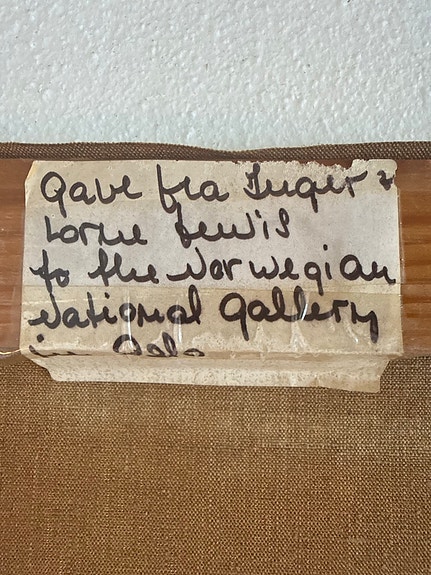 Gave fra Inger &
Lorne Lewis
to the Norwegian
National Gallery
in Oslo